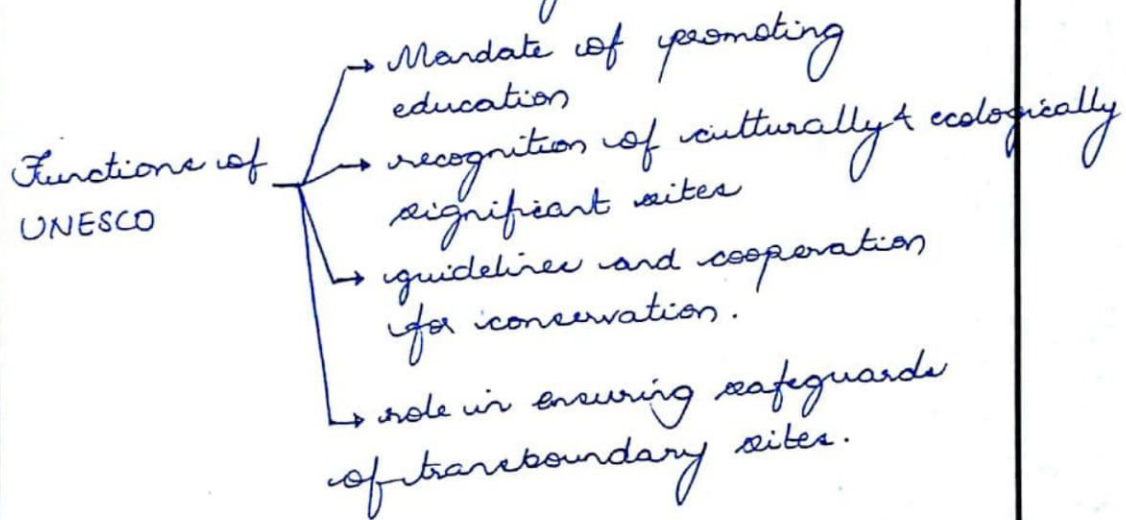 Mandate of promoting
education
recognition of culturally & ecologically
significant sites
Functions of
UNESCO
guidelines and cooperation
for conservation.
role in ensuring safeguards
of transboundary sites.